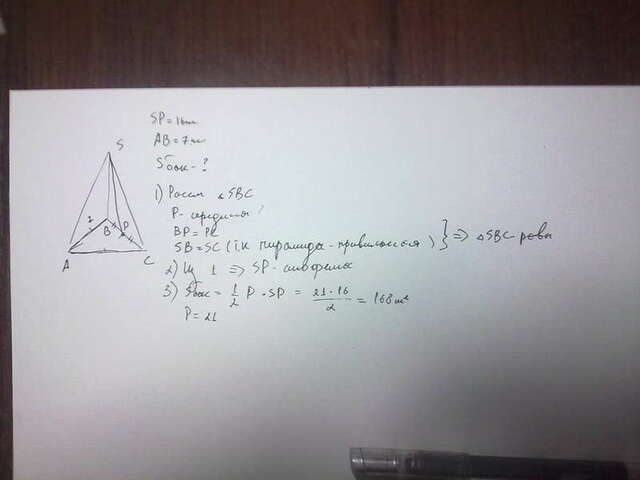 SP = 16см
AB = 7см
Sбок - ?
S
7
B
P
A
C
1) Рассм △SBC
P - середина
BP = PC
SB = SC (т.к пирамида - правильная) } => △SBC-равн
2) Из 1 => SP - апофема
3) Sбок = 1/2 P · SP = 21 · 16 / 2 = 168 см²
P = 21